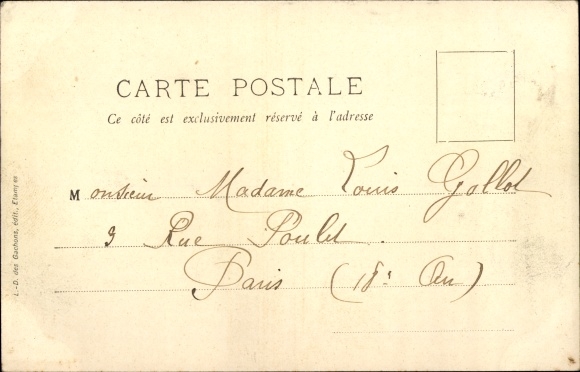 CARTE POSTALE
Ce côté est exclusivement réservé à l'adresse
Monsieur Madame Louis Gollot
3 Rue Poulet.
Paris (18e Arr)
L.-D. des Gachons, édit., Etampes